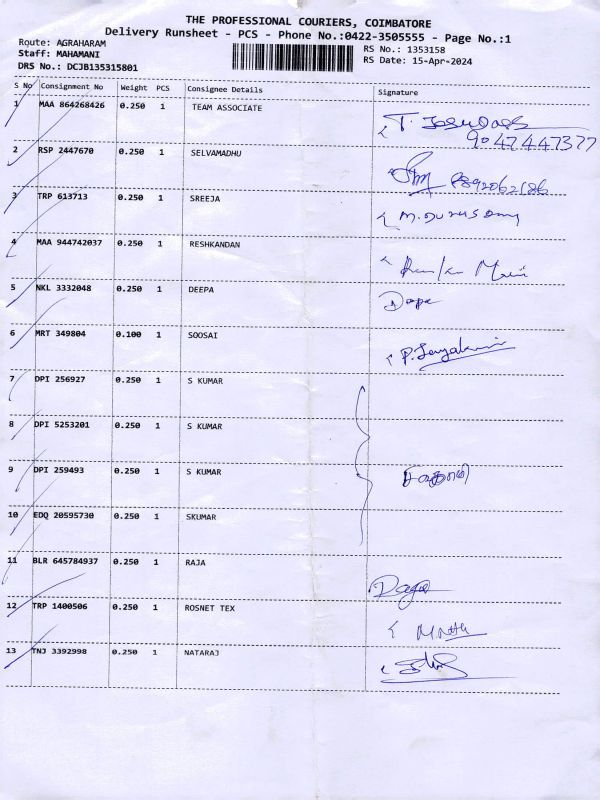 THE PROFESSIONAL COURIERS, COIMBATORE
Delivery Runsheet - PCS - Phone No.:0422-3505555 - Page No.:1
Route: AGRAHARAM
Staff: MAHAMANI
DRS No.: DCJB135315801
RS No.: 1353158
RS Date: 15-Apr-2024
S No Consignment No Weight PCS Consignee Details Signature
1 MAA 864268426 0.250 1 TEAM ASSOCIATE
9047447377
2 RSP 2447670 0.250 1 SELVAMADHU
3 TRP 613713 0.250 1 SREEJA
4 MAA 944742037 0.250 1 RESHKANDAN
5 NKL 3332048 0.250 1 DEEPA
6 MRT 349804 0.100 1 SOOSAI
7 DPI 256927 0.250 1 S KUMAR
8 DPI 5253201 0.250 1 S KUMAR
9 DPI 259493 0.250 1 S KUMAR
10 EDQ 20595730 0.250 1 SKUMAR
11 BLR 645784937 0.250 1 RAJA
12 TRP 1400506 0.250 1 ROSNET TEX
13 TNJ 3392998 0.250 1 NATARAJ